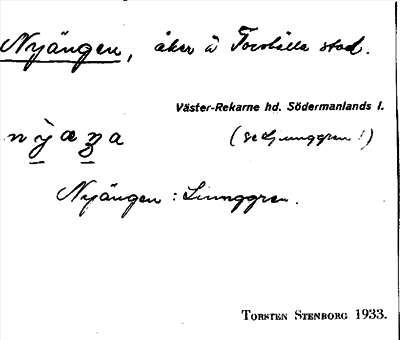 Nyängen, åker å Torshälla stad.
Väster-Rekarne hd. Södermanlands l.
(se Ljunggren!)
Nyängen : Ljunggren.
TORSTEN STENBORG 1933.